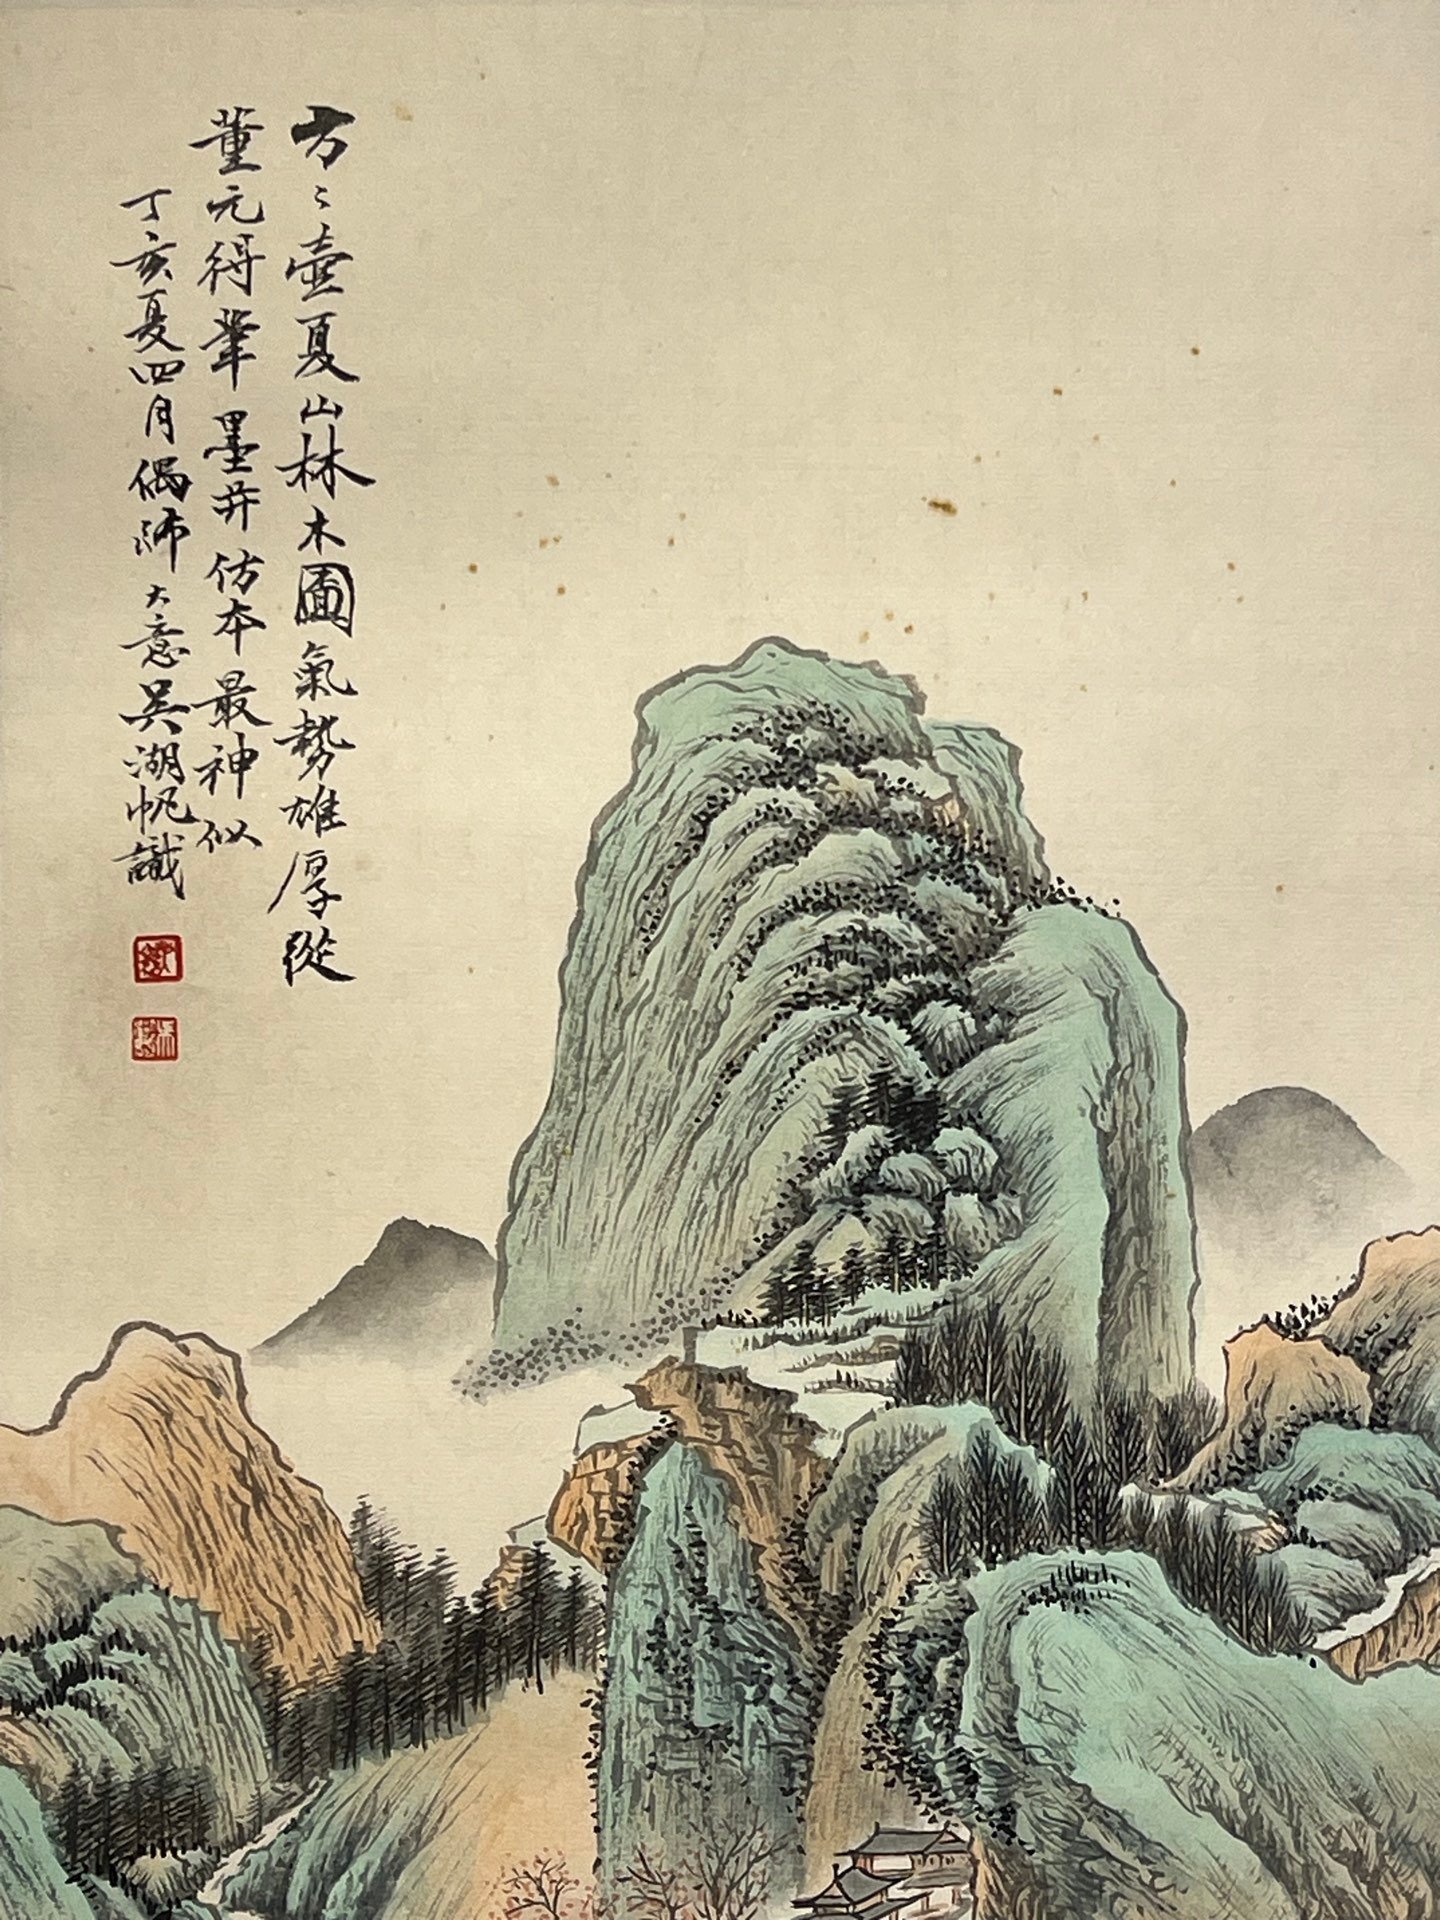 方〻壺夏山林木圖氣勢雄厚從
董元得筆墨并仿本最神似
丁亥夏四月偶師大意吳湖帆識